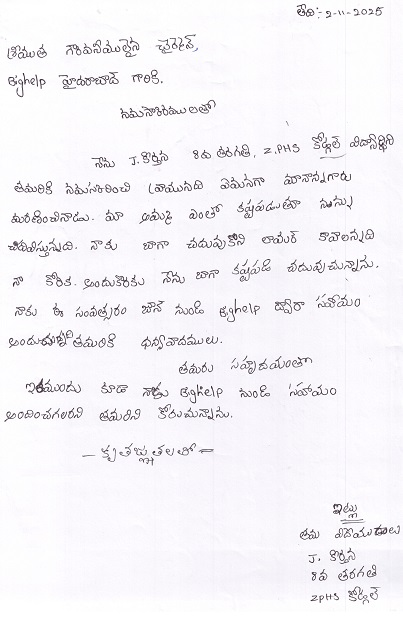 తేది:- 2-11-2025
శ్రీయుత గౌరవనీయులైన ఛైర్మెన్,
Bighelp హైదరాబాద్ గారికి.
నమస్కారములతో
నేను J. కీర్తన 8వ తరగతి, Z.PHS కోర్గల్ విద్యార్థిని
తమరికి నమస్కరించి వ్రాయునది ఏమనగా మానాన్నగారు
మరణించినాడు. మా అమ్మ ఎంతో కష్టపడుతూ నన్ను
చదివిస్తున్నది. నాకు బాగా చదువుకొని లాయర్ కావాలన్నది
నా కోరిక. అందుకొరకు నేను బాగా కష్టపడి చదువుచున్నాను.
నాకు ఈ సంవత్సరం జూన్ నుండి Bighelp ద్వారా సహాయం
తమరికి ధన్యవాదములు.
తమరు సహృదయంతో
ఇకముందు కూడా నాకు Bighelp నుండి సహాయం
అందించగలరని తమరిని కోరుచున్నాను.
- కృతజ్ఞతలతో =
ఇట్లు
తమ విధేయురాలు
J. కీర్తన
8వ తరగతి
ZPHS కోర్గల్